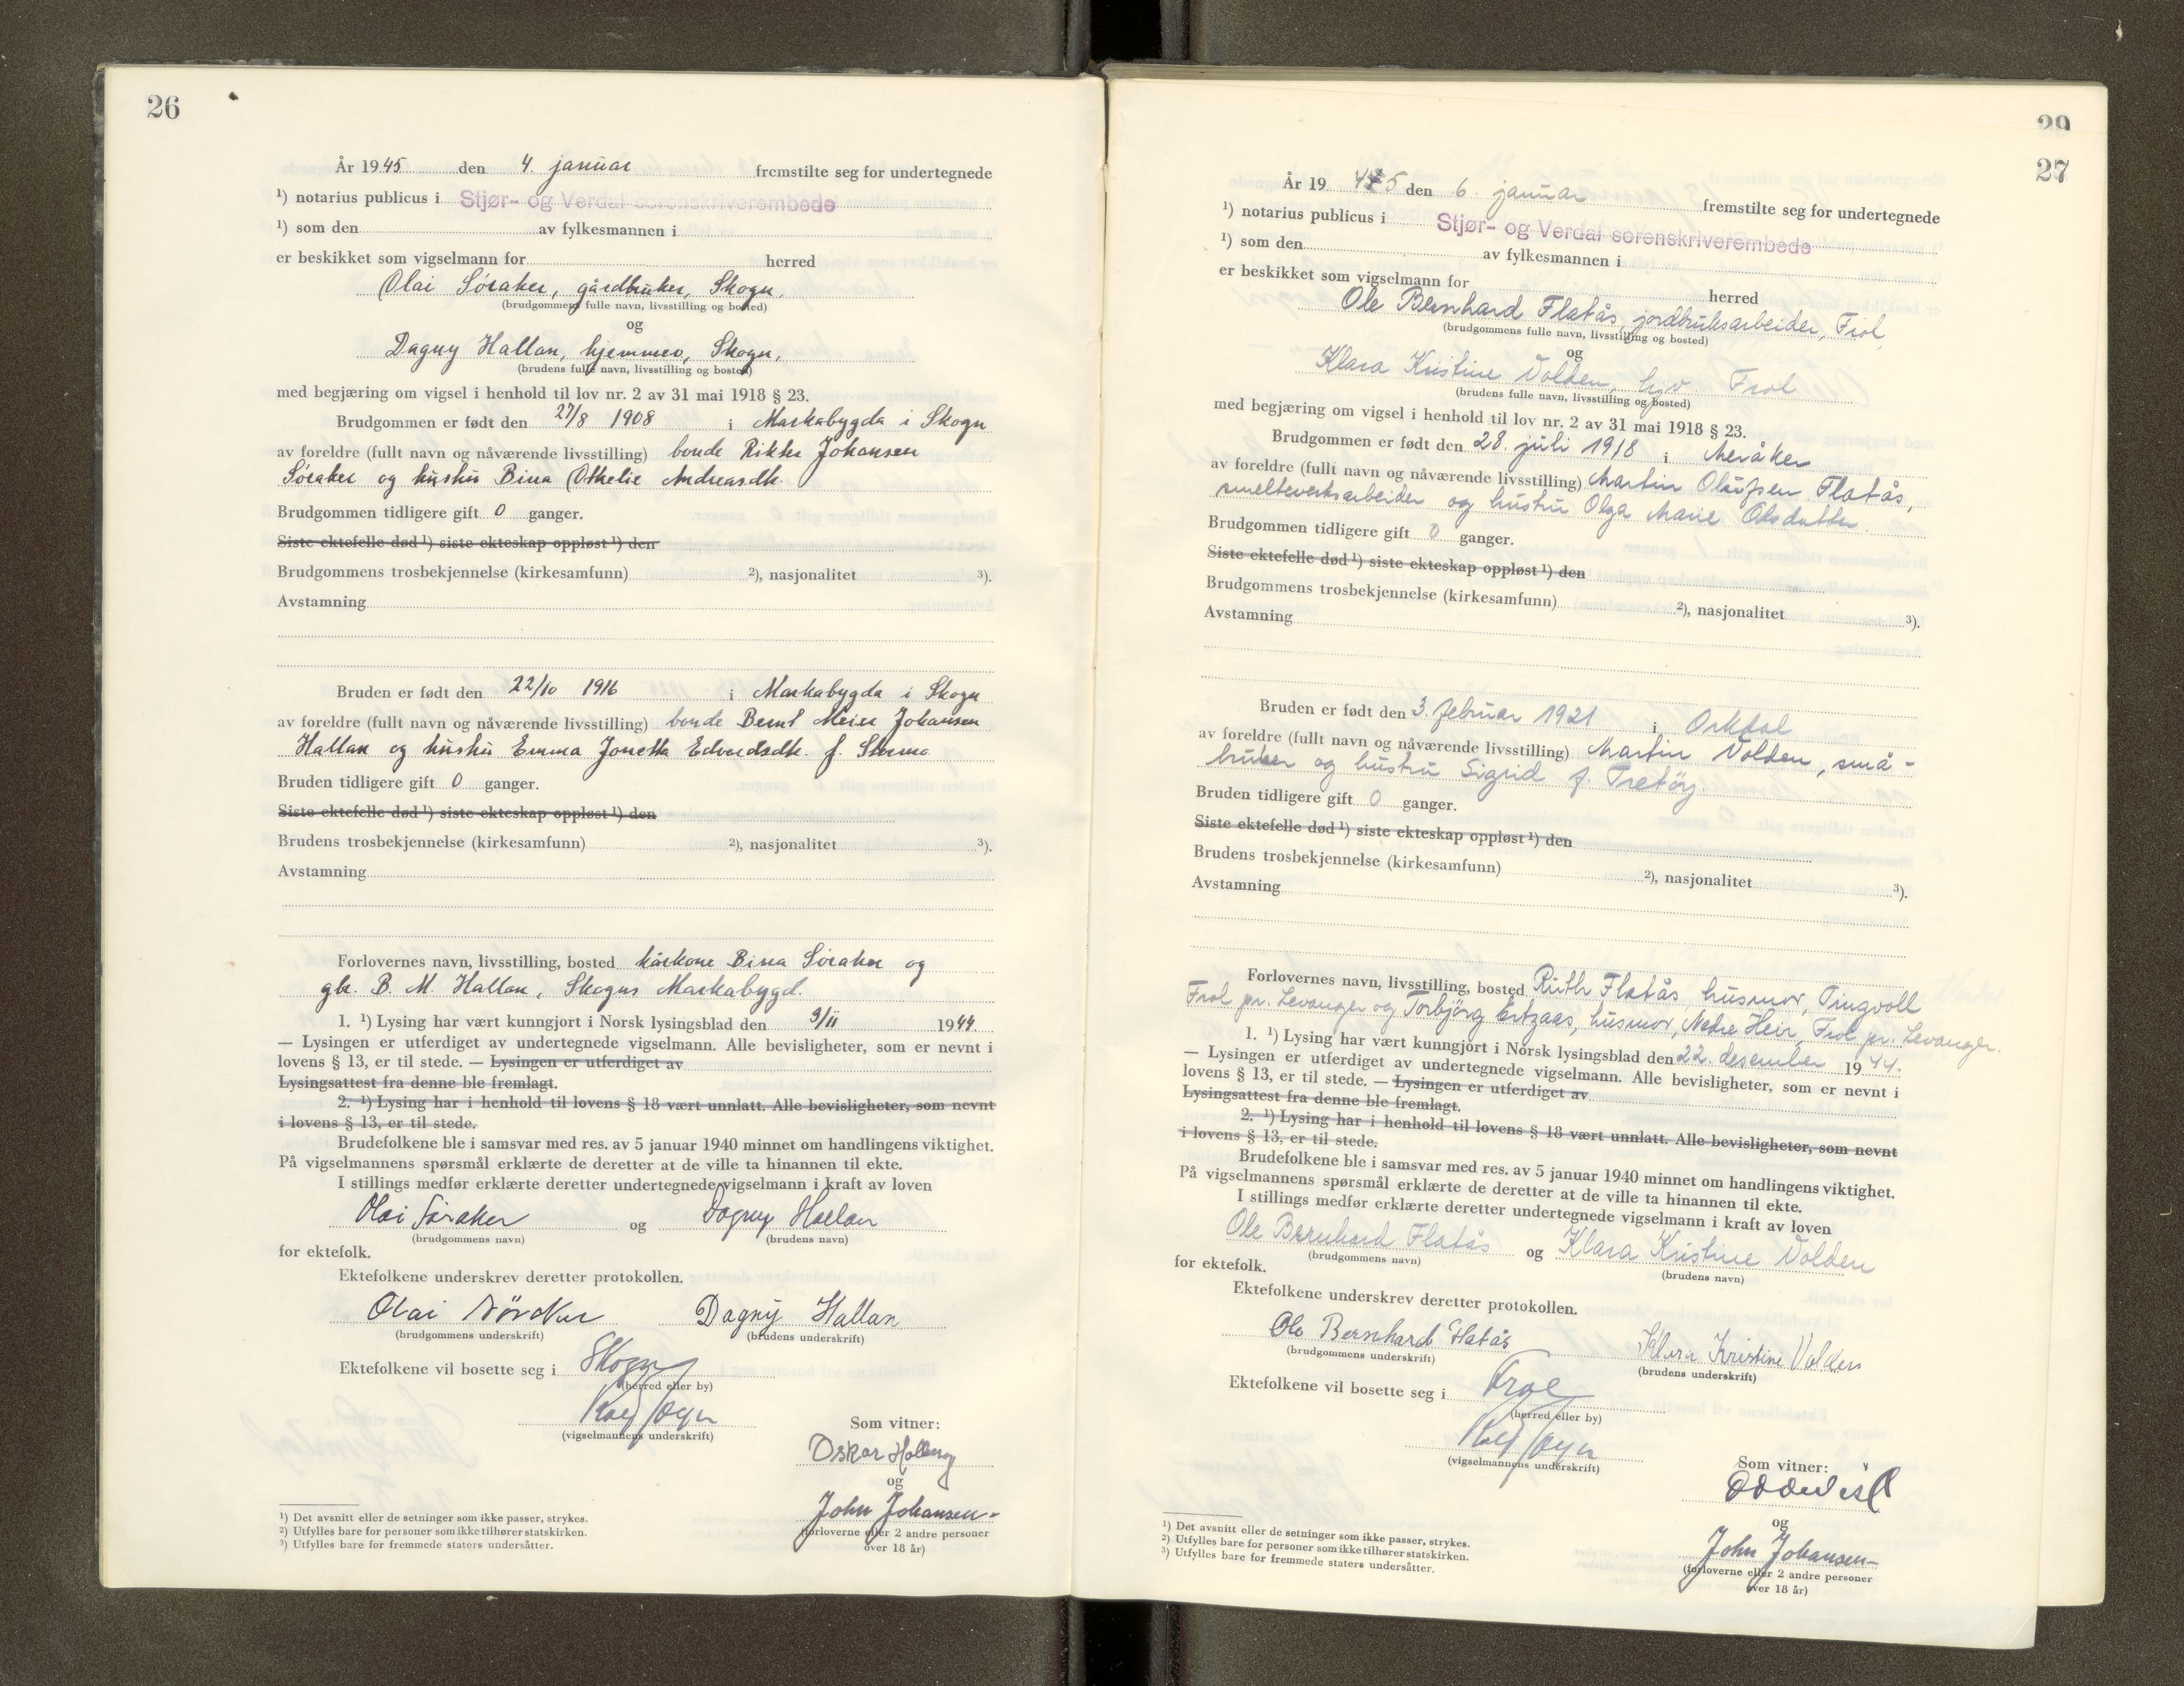 26
År 1945 den 4. januar fremstilte seg for undertegnede
¹) notarius publicus i Stjør- og Verdal sorenskriverembede
¹) som den av fylkesmannen i
er beskikket som vigselmann for herred
Olai Søraker, gårdbruker, Skogn.
(brudgommens fulle navn, livsstilling og bosted)
og
Dagny Hallan, hjemmev, Skogn.
(brudens fulle navn, livsstilling og bosted)
med begjæring om vigsel i henhold til lov nr. 2 av 31 mai 1918 § 23.
Brudgommen er født den 27/8 1908 i Markabygda i Skogn
av foreldre (fullt navn og nåværende livsstilling) bonde Rikter Johansen
Søraker og hustru Bina Othelie Andreasdtr.
Brudgommen tidligere gift 0 ganger.
Siste ektefelle død ¹) siste ekteskap oppløst ¹) den
Brudgommens trosbekjennelse (kirkesamfunn) ²), nasjonalitet ³).
Avstamning
Bruden er født den 22/10 1916 i Markabygda i Skogn
av foreldre (fullt navn og nåværende livsstilling) bonde Bernt Meier Johansen
Hallan og hustru Emma Jonetta Edvardsdtr. f.
Bruden tidligere gift 0 ganger.
Siste ektefelle død ¹) siste ekteskap oppløst ¹) den
Brudens trosbekjennelse (kirkesamfunn) ²), nasjonalitet ³).
Avstamning
Forlovernes navn, livsstilling, bosted kårkone Bina Søraker og
gbr. B. M. Hallan, Skogns Markabygd.
1. ¹) Lysing har vært kunngjort i Norsk lysingsblad den 3/11 1944
— Lysingen er utferdiget av undertegnede vigselmann. Alle bevisligheter, som er nevnt i
lovens § 13, er til stede. — Lysingen er utferdiget av
Lysingsattest fra denne ble fremlagt.
2. ¹) Lysing har i henhold til lovens § 18 vært unnlatt. Alle bevisligheter, som nevnt
i lovens § 13, er til stede.
Brudefolkene ble i samsvar med res. av 5 januar 1940 minnet om handlingens viktighet.
På vigselmannens spørsmål erklærte de deretter at de ville ta hinannen til ekte.
I stillings medfør erklærte deretter undertegnede vigselmann i kraft av loven
Olai Søraker og Dagny Hallan
(brudgommens navn) (brudens navn)
for ektefolk.
Ektefolkene underskrev deretter protokollen.
Olai Söraker Dagny Hallan
(brudgommens underskrift) (brudens underskrift)
Ektefolkene vil bosette seg i Skogn
(herred eller by)
(vigselmannens underskrift)
Som vitner:
Oskar
og
John Johansen
(forloverne eller 2 andre personer
over 18 år)
¹) Det avsnitt eller de setninger som ikke passer, strykes.
²) Utfylles bare for personer som ikke tilhører statskirken.
³) Utfylles bare for fremmede staters undersåtter.
29
27
År 19 445 den 6. januar fremstilte seg for undertegnede
¹) notarius publicus i Stjør- og Verdal sorenskriverembede
¹) som den av fylkesmannen i
er beskikket som vigselmann for herred
Ole Bernhard Flatås, jordbruksarbeider, Frol
(brudgommens fulle navn, livsstilling og bosted)
og
Klara Kristine Volden, hjv. Frol
(brudens fulle navn, livsstilling og bosted)
med begjæring om vigsel i henhold til lov nr. 2 av 31 mai 1918 § 23.
Brudgommen er født den 28. juli 1918 i Meråker
av foreldre (fullt navn og nåværende livsstilling) Martin Olaufsen Flatås,
smelteverksarbeider og hustru Olga Marie Olsdatter.
Brudgommen tidligere gift 0 ganger.
Siste ektefelle død ¹) siste ekteskap oppløst ¹) den
Brudgommens trosbekjennelse (kirkesamfunn) ²), nasjonalitet ³).
Avstamning
Bruden er født den 3. februar 1921 i Orkdal
av foreldre (fullt navn og nåværende livsstilling) Martin Volden, små-
bruker og hustru Sigrid f. Tretöy.
Bruden tidligere gift 0 ganger.
Siste ektefelle død ¹) siste ekteskap oppløst ¹) den
Brudens trosbekjennelse (kirkesamfunn) ²), nasjonalitet ³).
Avstamning
Forlovernes navn, livsstilling, bosted Ruth Flatås husmor, Tingvoll
Frol pr. Levanger og Torbjörg Ertzaas, husmor, Nedre Heir, Frol pr. Levanger.
1. ¹) Lysing har vært kunngjort i Norsk lysingsblad den 22. desember 1944.
— Lysingen er utferdiget av undertegnede vigselmann. Alle bevisligheter, som er nevnt i
lovens § 13, er til stede. — Lysingen er utferdiget av
Lysingsattest fra denne ble fremlagt.
2. ¹) Lysing har i henhold til lovens § 18 vært unnlatt. Alle bevisligheter, som nevnt
i lovens § 13, er til stede.
Brudefolkene ble i samsvar med res. av 5 januar 1940 minnet om handlingens viktighet.
På vigselmannens spørsmål erklærte de deretter at de ville ta hinannen til ekte.
I stillings medfør erklærte deretter undertegnede vigselmann i kraft av loven
Ole Bernhard Flatås og Klara Kristine Volden
(brudgommens navn) (brudens navn)
for ektefolk.
Ektefolkene underskrev deretter protokollen.
Ole Bernhard Flatås Klara Kristine Volden
(brudgommens underskrift) (brudens underskrift)
Ektefolkene vil bosette seg i Frol
(herred eller by)
(vigselmannens underskrift)
Som vitner:
og
John Johansen
(forloverne eller 2 andre personer
over 18 år)
¹) Det avsnitt eller de setninger som ikke passer, strykes.
²) Utfylles bare for personer som ikke tilhører statskirken.
³) Utfylles bare for fremmede staters undersåtter.